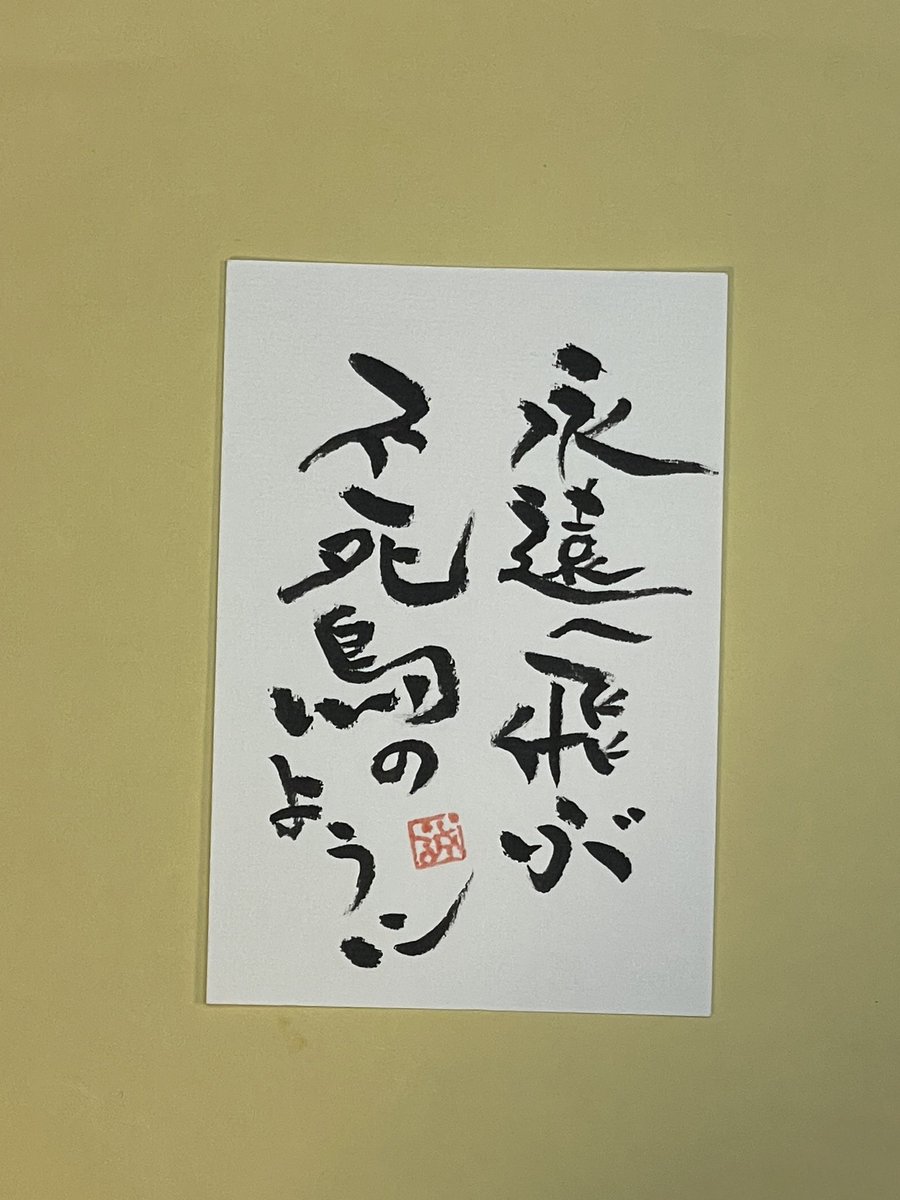 永遠へ飛ぶ
不死鳥のように